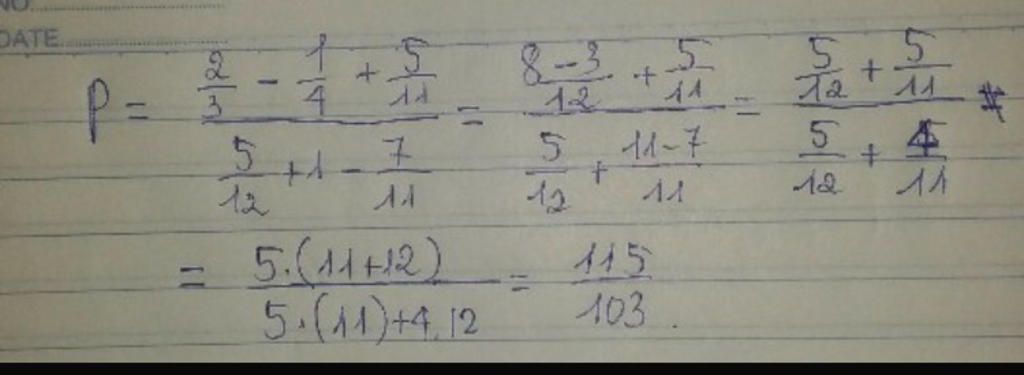 NO.
DATE
P = \frac{\frac{2}{3} - \frac{1}{4} + \frac{5}{11}}{\frac{5}{12} + 1 - \frac{7}{11}} = \frac{\frac{8-3}{12} + \frac{5}{11}}{\frac{5}{12} + \frac{11-7}{11}} = \frac{\frac{5}{12} + \frac{5}{11}}{\frac{5}{12} + \frac{4}{11}} #
= \frac{5.(11+12)}{5.(11)+4.12} = \frac{115}{103}.